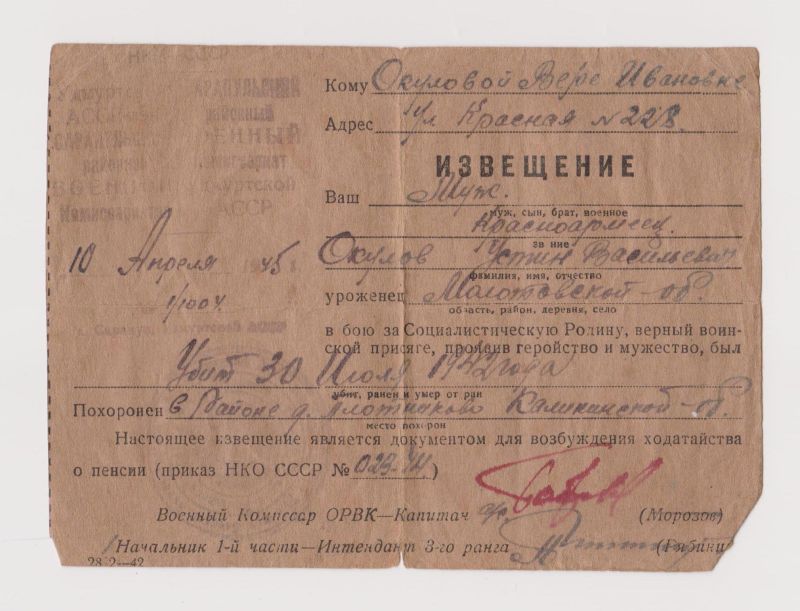 НКО СССР
Удмурт
АССР
САРАПУЛЬСКИЙ
районный
ВОЕННЫЙ
Комиссариат
САРАПУЛЬСКИЙ
районный
ВОЕННЫЙ
Комиссариат
Удмуртской
АССР
10 Апреля 1945 г.
1/1004
Кому Окуловой Вере Ивановне
Адрес Ул Красная № 228.
ИЗВЕЩЕНИЕ
Ваш Муж.
муж, сын, брат, военное
Красноармеец.
звание
Окулов Устин Васильевич
фамилия, имя, отчество
уроженец Молотовской-об.
область, район, деревня, село
в бою за Социалистическую Родину, верный воин-
ской присяге, проявив геройство и мужество, был
Убит 30 Июля 1942 года
убит, ранен и умер от ран
Похоронен в Районе д. Плотниково Калининской-об.
место похорон
Настоящее извещение является документом для возбуждения ходатайства
о пенсии (приказ НКО СССР № 023-44)
Военный Комиссар ОРВК—Капитан (Морозов)
Начальник 1-й части—Интендант 3-го ранга
28 2—42